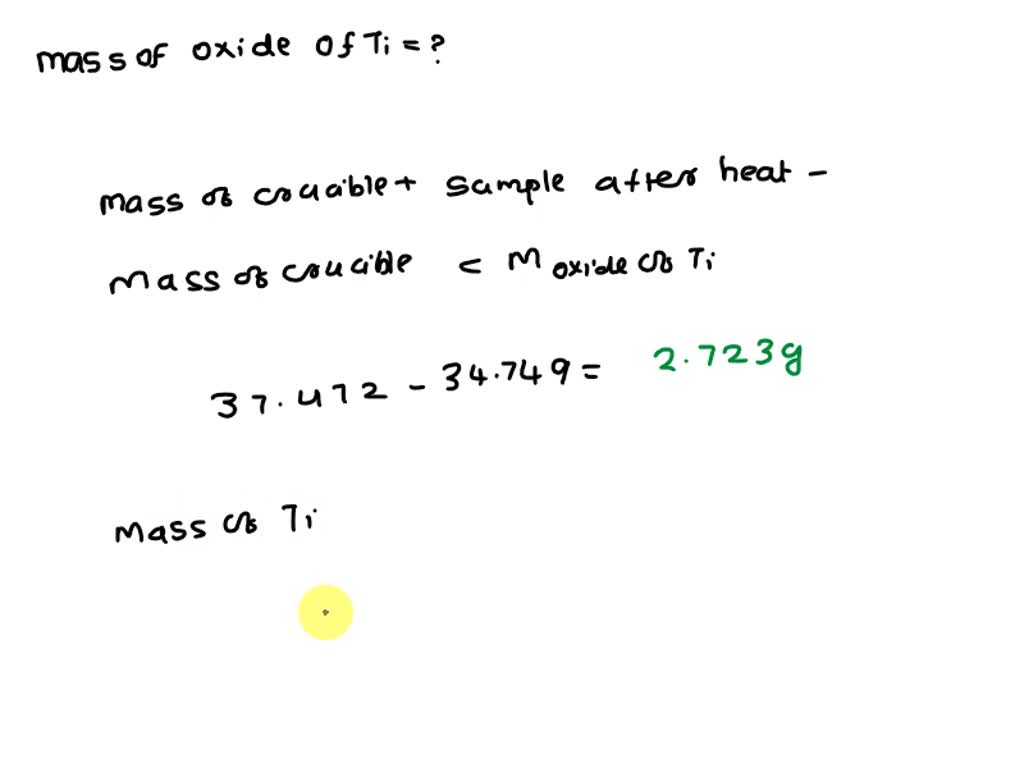 mass of oxide of Ti = ?
mass of crucible + sample after heat -
mass of crucible = M oxide of Ti
37.472 - 34.749 = 2.723g
mass of Ti